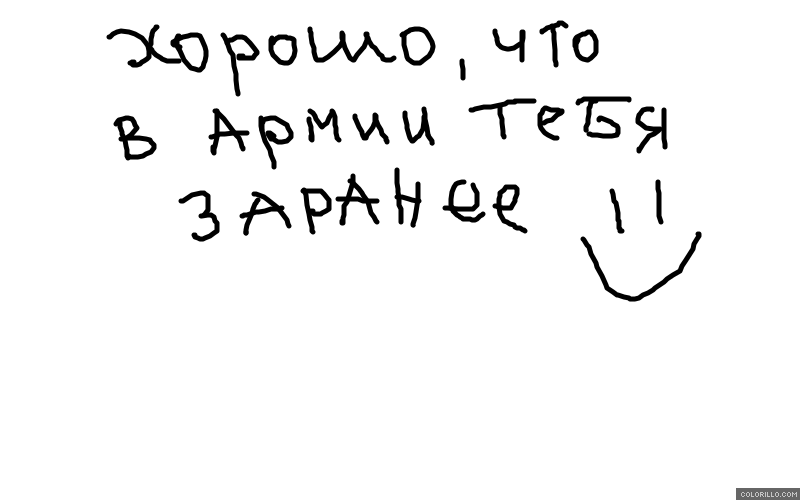 хорошо, что
в Армии тебя
заранее
COLORILLO.COM